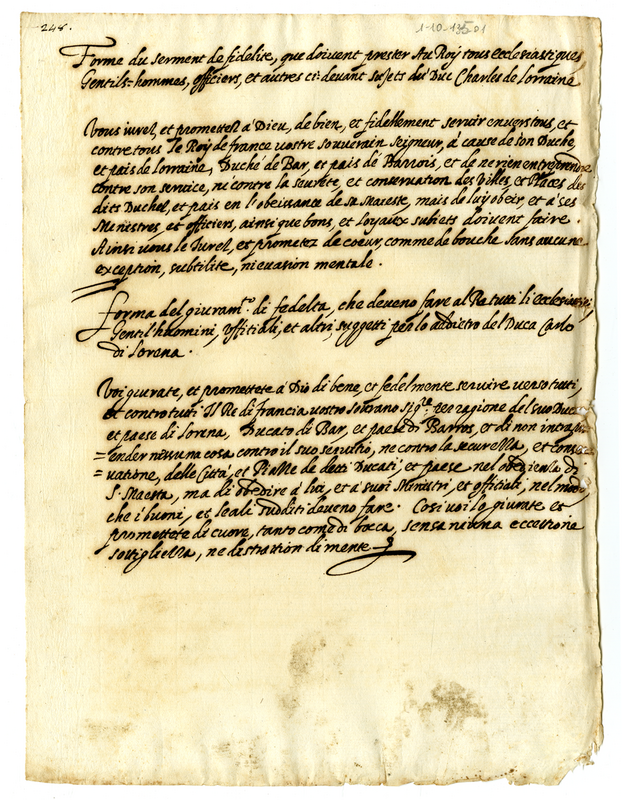 248.
1-10-135-01
Forme du serment de fidelite, que doivent prester Au Roy tous ecclesiastiques
Gentils=hommes, officiers, et autres ci=devant sujets du Duc Charles de Lorraine
Vous iurez, et promettez a Dieu, de bien, et fidellement servir envers tous, et
contre tous le Roy de france vostre souverain Seigneur, à cause de son Duché,
et pais de Lorraine, Duché de Bar, et pais de Barrois, et de ne rien entreprendre
contre son service, ne contre la seureté, et conservation des Villes, et Places des
dits Duchez, et pais en l'obeissance de sa Maiesté, mais de luy obeir, et à ses
Ministres, et officiers, ainsi que bons, et loyaux subiets doivent faire.
Ainsi vous le Iurez, et prometez de coeur, comme de bouche sans aucune
exception, subtilite, ni evasion mentale.
Forma del giuram.to di fedelta, che deveno fare al Re tutti li ecclesiastici,
Gentil'huomini, officiali, et altri suggetti per lo addietro del Duca Carlo
di Lorena.
Voi giurate, et promettete à Dio di bene, et fedelmente servire verso tutti,
et contro tutti Il Re di francia vostro sovrano sig.re per ragione del suo Duc
et paese di Lorena, Ducato di Bar, et paese di Barros, et di non intrapr
=ender nissuna cosa contro il suo servitio, ne contro la securezza, et conser
=vatione, delle Città, et Piazze de detti Ducati, et paese nel obedienza di
S. Maesta, ma di obedire à lui, et a suoi Ministri, et officiali, nel modo
che i buoni, et leali sudditi deveno fare. Cosi voi lo giurate et
promettete di cuore, tanto come di bocca, sensa niuna eccettione
sottigliezza, ne distration di mente